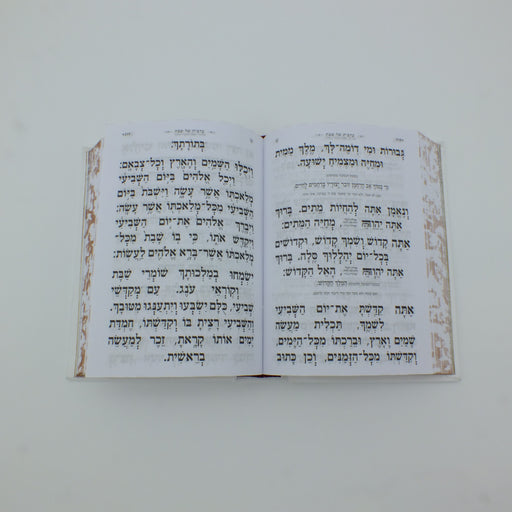 ערבית של שבת
גְּבוּרוֹת וּמִי דוֹמֶה־לָּךְ, מֶלֶךְ מֵמִית
וּמְחַיֶּה וּמַצְמִיחַ יְשׁוּעָה.
וְנֶאֱמָן אַתָּה לְהַחֲיוֹת מֵתִים. בָּרוּךְ
אַתָּה יהוה מְחַיֵּה הַמֵּתִים:
אַתָּה קָדוֹשׁ וְשִׁמְךָ קָדוֹשׁ, וּקְדוֹשִׁים
בְּכָל־יוֹם יְהַלְלוּךָ סֶּלָה. בָּרוּךְ
אַתָּה יהוה הָאֵל הַקָּדוֹשׁ:
אַתָּה קִדַּשְׁתָּ אֶת־יוֹם הַשְּׁבִיעִי
לִשְׁמֶךָ. תַּכְלִית מַעֲשֵׂה
שָׁמַיִם וָאָרֶץ, וּבֵרַכְתּוֹ מִכָּל־הַיָּמִים,
וְקִדַּשְׁתּוֹ מִכָּל־הַזְּמַנִּים, וְכֵן כָּתוּב
ערבית של שבת
בְּתוֹרָתֶךָ:
וַיְכֻלּוּ הַשָּׁמַיִם וְהָאָרֶץ וְכָל־צְבָאָם:
וַיְכַל אֱלֹהִים בַּיּוֹם הַשְּׁבִיעִי
מְלַאכְתּוֹ אֲשֶׁר עָשָׂה וַיִּשְׁבֹּת בַּיּוֹם
הַשְּׁבִיעִי מִכָּל־מְלַאכְתּוֹ אֲשֶׁר עָשָׂה:
וַיְבָרֶךְ אֱלֹהִים אֶת־יוֹם הַשְּׁבִיעִי
וַיְקַדֵּשׁ אֹתוֹ, כִּי בוֹ שָׁבַת מִכָּל־
מְלַאכְתּוֹ אֲשֶׁר־בָּרָא אֱלֹהִים לַעֲשׂוֹת:
יִשְׂמְחוּ בְמַלְכוּתְךָ שׁוֹמְרֵי שַׁבָּת
וְקוֹרְאֵי עֹנֶג. עַם מְקַדְּשֵׁי
שְׁבִיעִי, כֻּלָּם יִשְׂבְּעוּ וְיִתְעַנְּגוּ מִטּוּבֶךָ.
וְהַשְּׁבִיעִי רָצִיתָ בּוֹ וְקִדַּשְׁתּוֹ, חֶמְדַּת
יָמִים אוֹתוֹ קָרָאתָ, זֵכֶר לְמַעֲשֵׂה
בְרֵאשִׁית.